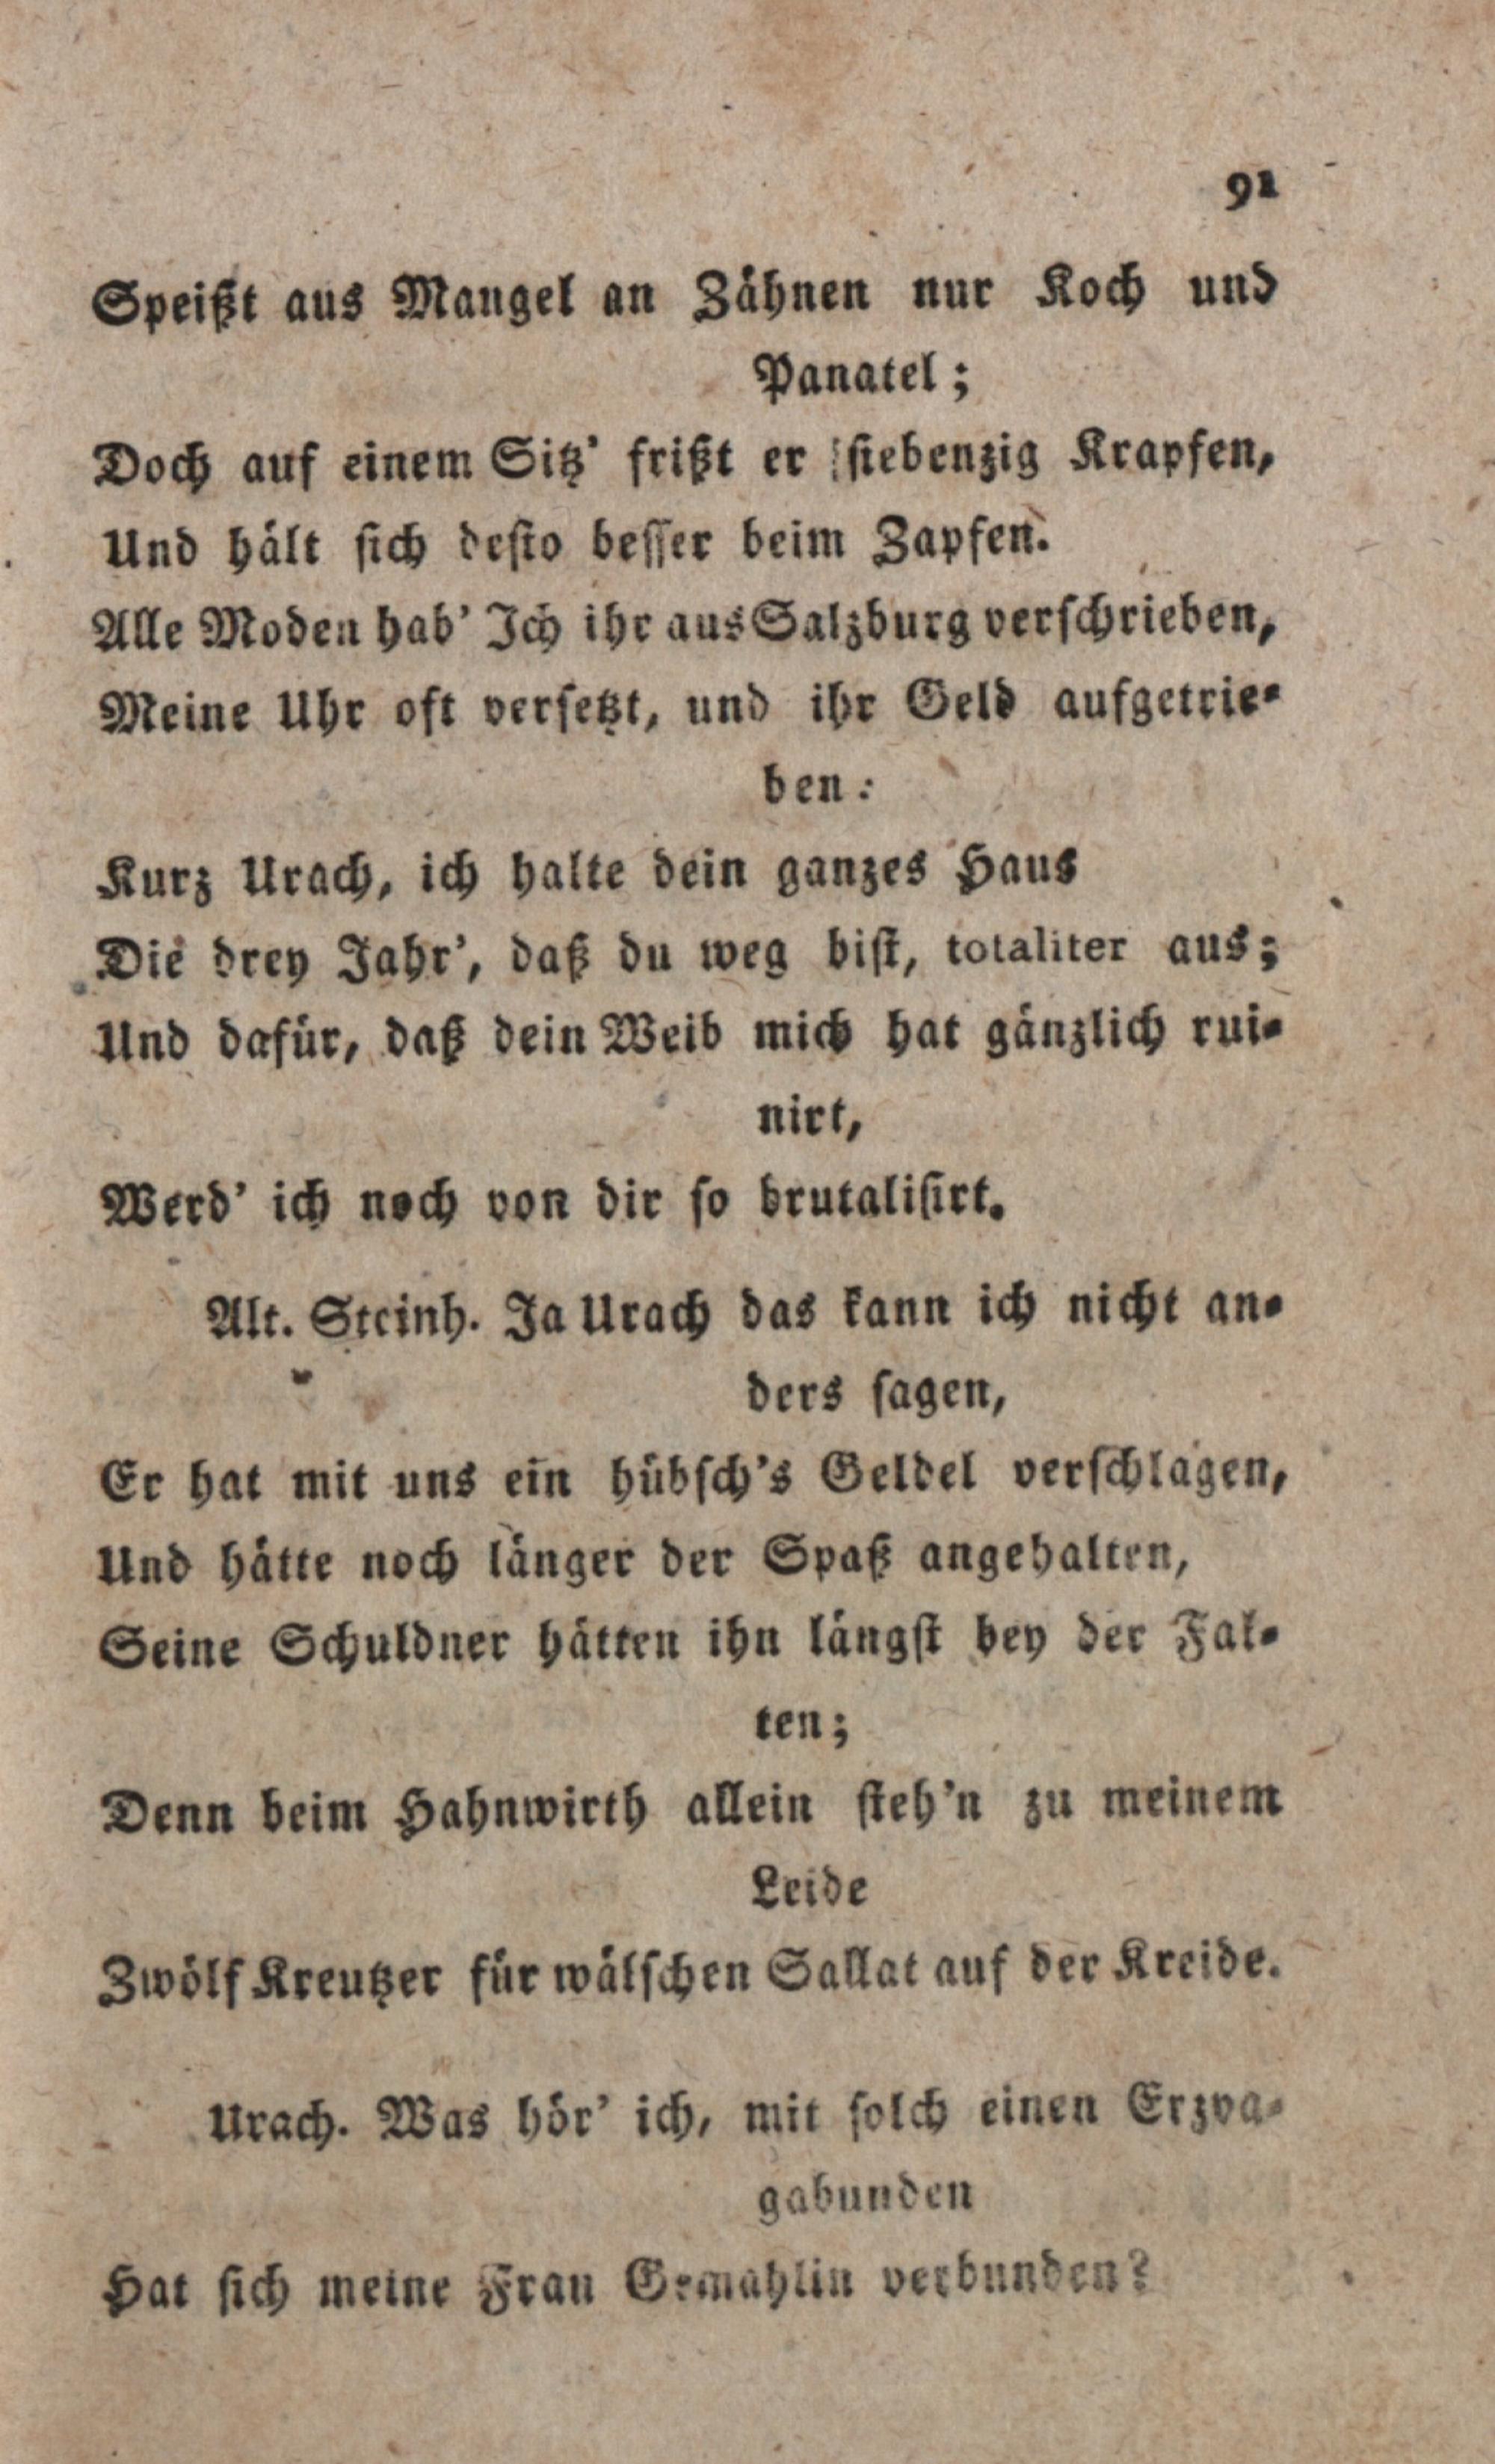 91
Speißt aus Mangel an Zähnen nur Koch und
Panatel;
Doch auf einem Sitz' frißt er siebenzig Krapfen,
Und hält sich desto besser beim Zapfen.
Alle Moden hab' Ich ihr aus Salzburg verschrieben,
Meine Uhr oft versetzt, und ihr Geld aufgetrie-
ben:
Kurz Urach, ich halte dein ganzes Haus
Die drey Jahr', daß du weg bist, totaliter aus;
Und dafür, daß dein Weib mich hat gänzlich rui-
nirt,
Werd' ich noch von dir so brutalisirt.
Alt. Steinh. Ja Urach das kann ich nicht an-
ders sagen,
Er hat mit uns ein hübsch's Geldel verschlagen,
Und hätte noch länger der Spaß angehalten,
Seine Schuldner hätten ihn längst bey der Fal-
ten;
Denn beim Hahnwirth allein steh'n zu meinem
Leide
Zwölf Kreutzer für wälschen Sallat auf der Kreide.
Urach. Was hör' ich, mit solch einen Erzva-
gabunden
Hat sich meine Frau Gemahlin verbunden?